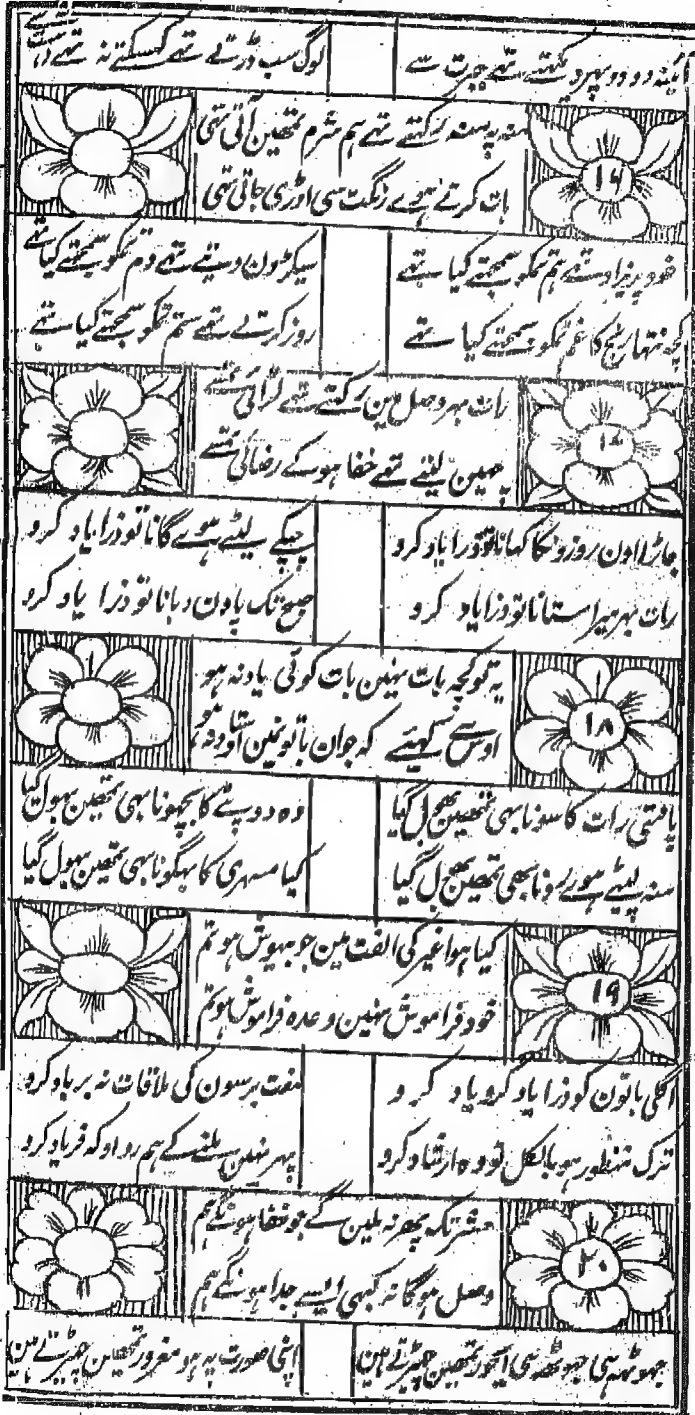 آئینہ دو دو پہر دیکھتے تھے حیرت سے
لوگ سب ڈرتے تھے کہہ سکتے نہ تھے
۱۶
منہ پہ منہ رکھتے تھے ہم شرم تمھین آتی تھی
بات کرتے ہوے رنگت سی اوڑی جاتی تھی
خود پریزاد تھے ہم تمکو سمجھتے کیا تھے
سیکڑون دیتے تھے دم تمکو سمجھتے کیا تھے
کچھ نتھا رنج کا غم تمکو سمجھتے کیا تھے
روز کرتے تھے ستم تمکو سمجھتے کیا تھے
۱۷
رات بہر وصل مین رکھتے تھے لڑائی تمسے
چھین لیتے تھے خفا ہوکے رضائی تمسے
جاڑا اون روزونکا کہانا تو ذرا یاد کرو
چپکے لیٹے ہوے گانا تو ذرا یاد کرو
رات بہر میرا ستانا تو ذرا یاد کرو
صبح تک پاون دبانا تو ذرا یاد کرو
۱۸
یہ تو کچہ بات نہین بات کوئی یاد نہ ہو
اوس سے کہیے کہ جو ان باتونمین اوستاد نہ ہو
پائنتی رات کا سونا بہی تمھین بھول گیا
وہ دوپٹے کا بچھونا بہی تمھین بھول گیا
منہ لپیٹے ہوے رونا بھی تمھین بھول گیا
کیا مسہری کا بہگونا بہی تمھین بہول گیا
۱۹
کیا ہوا غیر کی الفت مین جو بیہوش ہو تم
خود فراموش نہین وعدہ فراموش ہو تم
اگلی باتون کو ذرا یاد کرو یاد کرو
مفت برسون کی ملاقات نہ برباد کرو
ترک منظور ہو بالکل تو وہ ارشاد کرو
پہر نہین ملنے کے ہم رو او کہ فریاد کرو
۲۰
حشر تک پھر نہ ملین گے جو خفا ہونگے ہم
وصل ہوگا نہ کبہی ایسے جدا ہونگے ہم
جہوٹھ ہی جہوٹھ سی ایجور تمھین چھیڑتے ہین
اپنی صورت پہ ہو مغرور تمھین چھیڑتے ہین